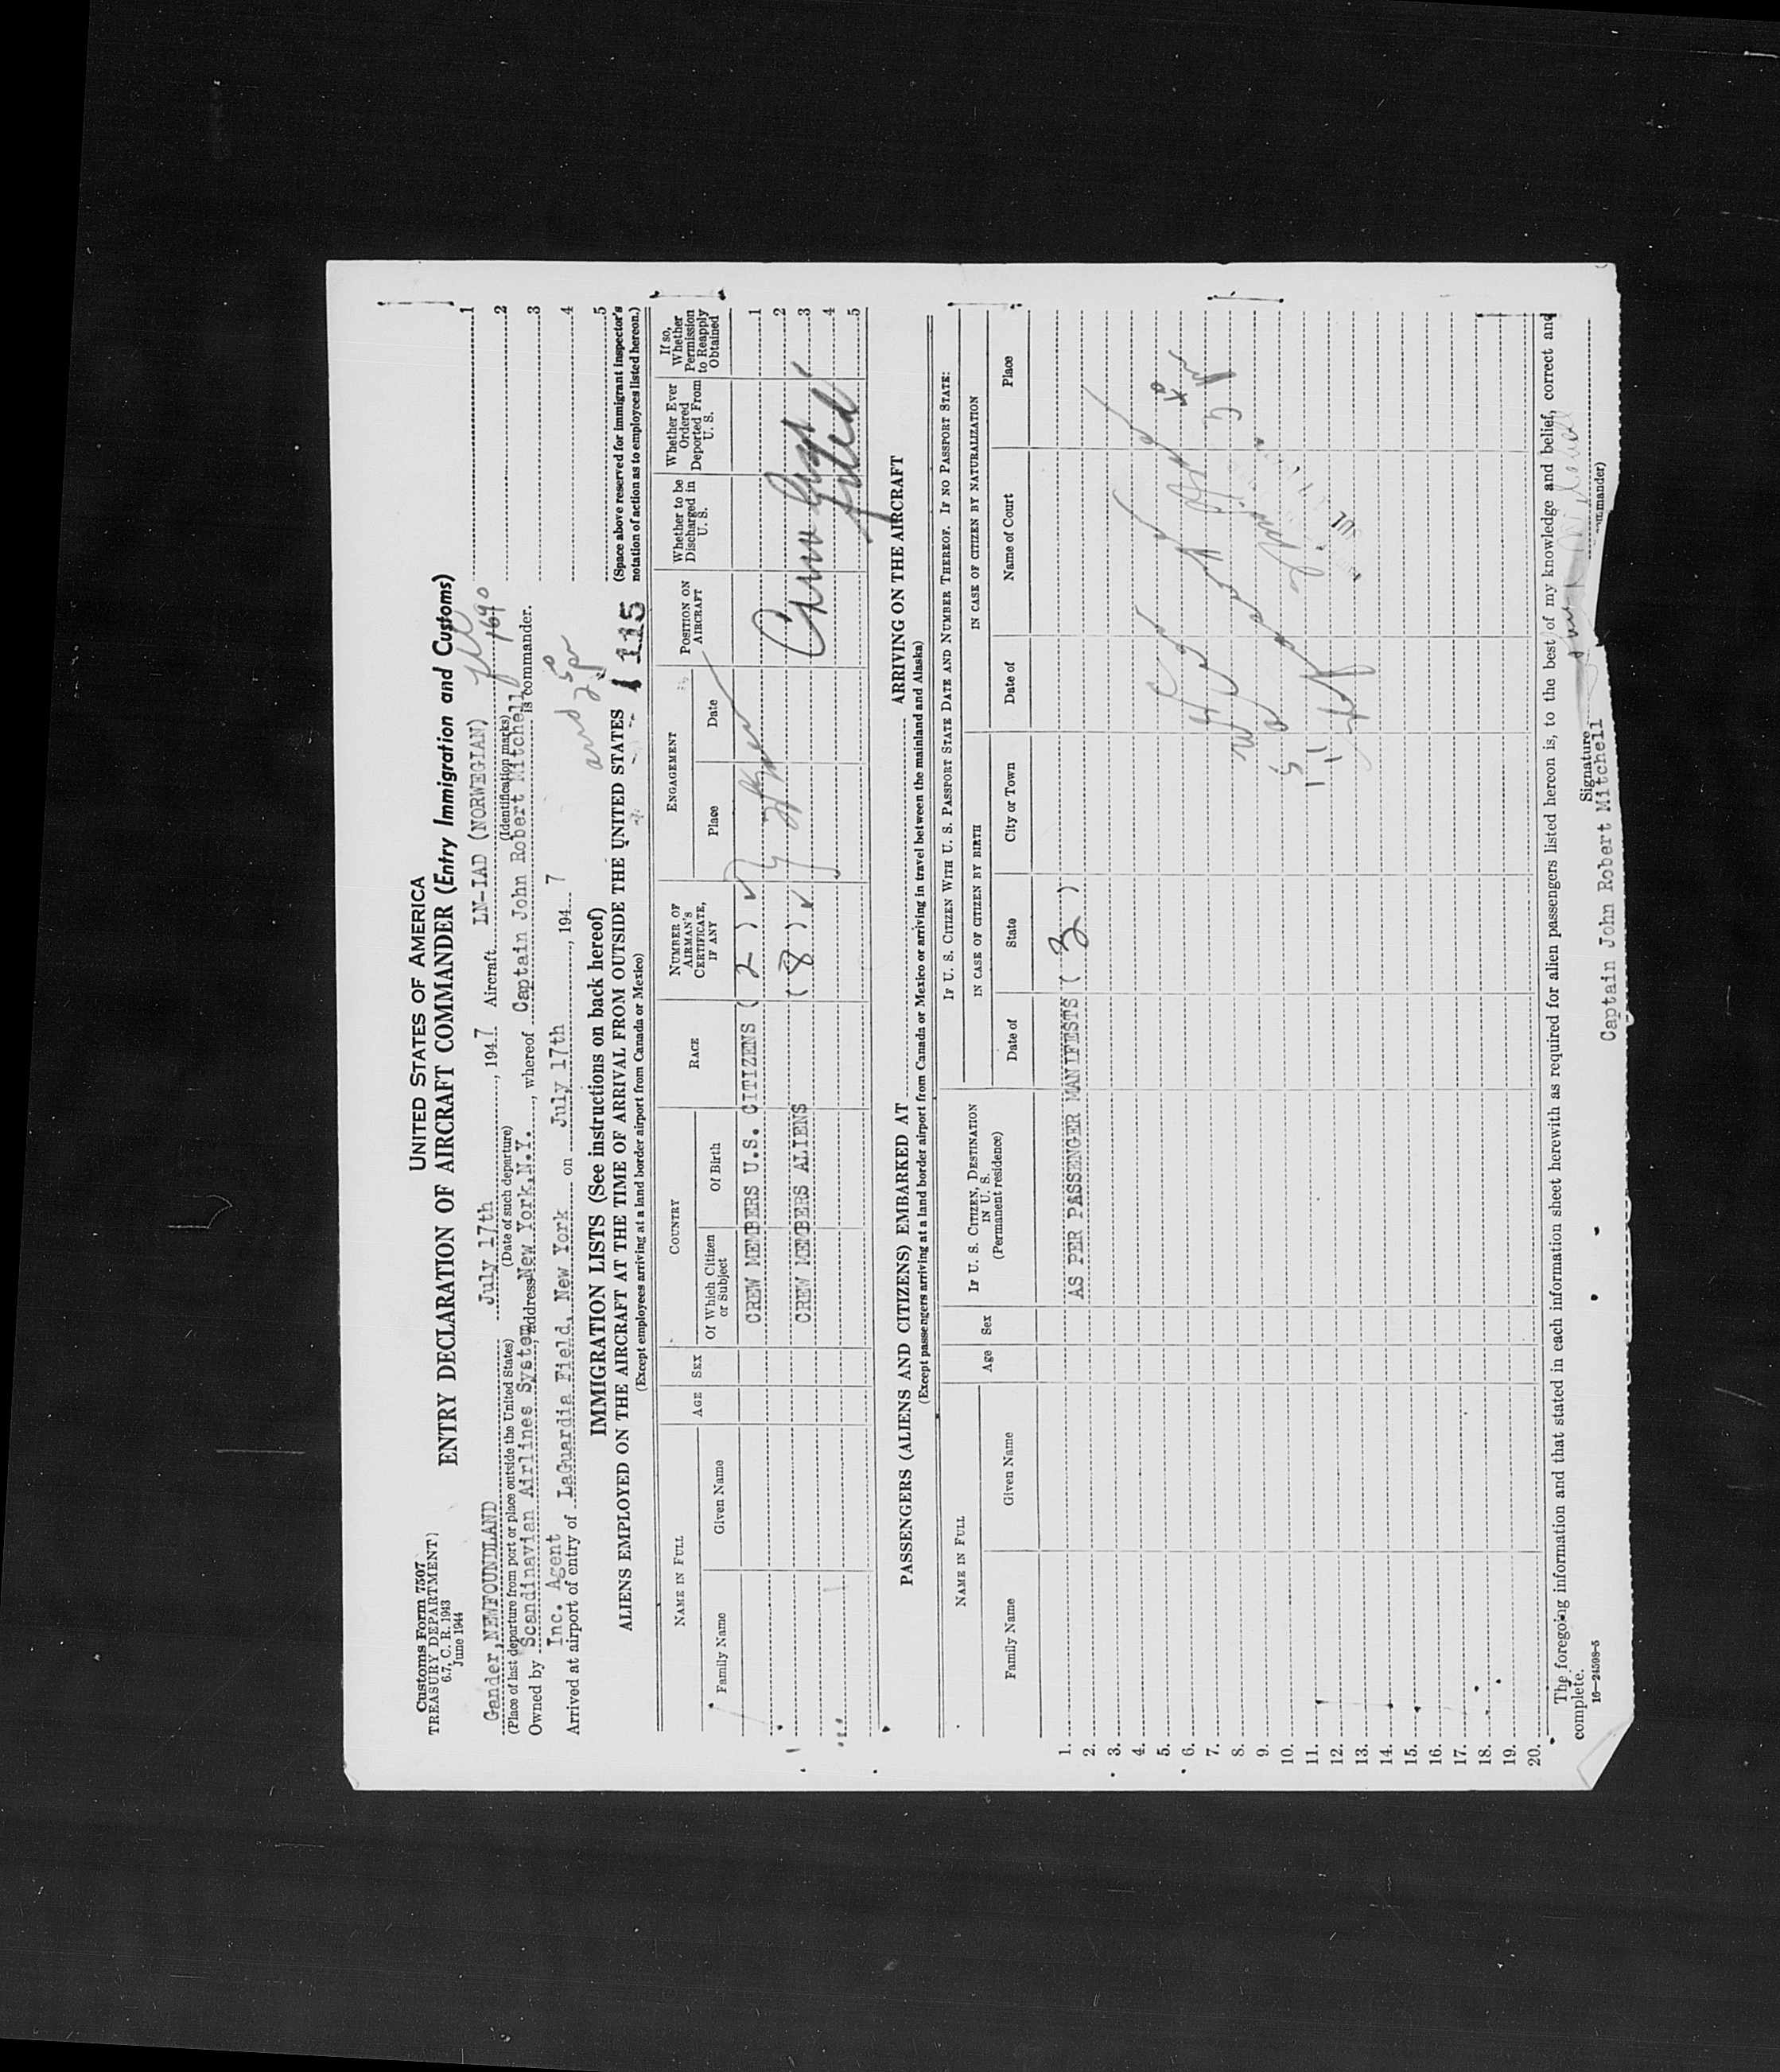 Customs Form 7507
TREASURY DEPARTMENT
6.7, C. R. 1943
June 1944
UNITED STATES OF AMERICA
ENTRY DECLARATION OF AIRCRAFT COMMANDER (Entry Immigration and Customs)
Gander, NEWFOUNDLAND July 17th, 1947 Aircraft LN-IAD (NORWEGIAN)
(Place of last departure from port or place outside the United States) (Date of such departure) (Identification marks)
1690
Owned by Scandinavian Airlines System, address New York, N.Y., whereof Captain John Robert Mitchell is commander.
Inc. Agent
Arrived at airport of entry of LaGuardia Field, New York on July 17th, 1947
1
2
3
4
5
(Space above reserved for immigrant inspector's notation of action as to employees listed hereon.)
IMMIGRATION LISTS (See instructions on back hereof)
ALIENS EMPLOYED ON THE AIRCRAFT AT THE TIME OF ARRIVAL FROM OUTSIDE THE UNITED STATES
(Except employees arriving at a land border airport from Canada or Mexico)
NAME IN FULL
Family Name
Given Name
AGE
SEX
COUNTRY
Of Which Citizen or Subject
Of Birth
RACE
NUMBER OF AIRMAN'S CERTIFICATE, IF ANY
ENGAGEMENT
Place
Date
POSITION ON AIRCRAFT
Whether to be Discharged in U. S.
Whether Ever Ordered Deported From U. S.
If so, Whether Permission to Reapply Obtained
CREW MEMBERS U.S. CITIZENS ( 2 ) ✓ 1
2
CREW MEMBERS ALIENS ( 8 ) ✓ 3
4
5
PASSENGERS (ALIENS AND CITIZENS) EMBARKED AT ARRIVING ON THE AIRCRAFT
(Except passengers arriving at a land border airport from Canada or Mexico or arriving in travel between the mainland and Alaska)
NAME IN FULL
Family Name
Given Name
Age
Sex
IF U. S. CITIZEN, DESTINATION IN U. S.
(Permanent residence)
IF U. S. CITIZEN WITH U. S. PASSPORT STATE DATE AND NUMBER THEREOF. IF NO PASSPORT STATE:
IN CASE OF CITIZEN BY BIRTH
Date of
State
City or Town
IN CASE OF CITIZEN BY NATURALIZATION
Date of
Name of Court
Place
1. AS PER PASSENGER MANIFESTS ( 3 )
2.
3.
4.
5.
6.
7.
8.
9.
10.
11.
12.
13.
14.
15.
16.
17.
18.
19.
20.
The foregoing information and that stated in each information sheet herewith as required for alien passengers listed hereon is, to the best of my knowledge and belief, correct and
complete.
16—24598-5
Signature
Captain John Robert Mitchell